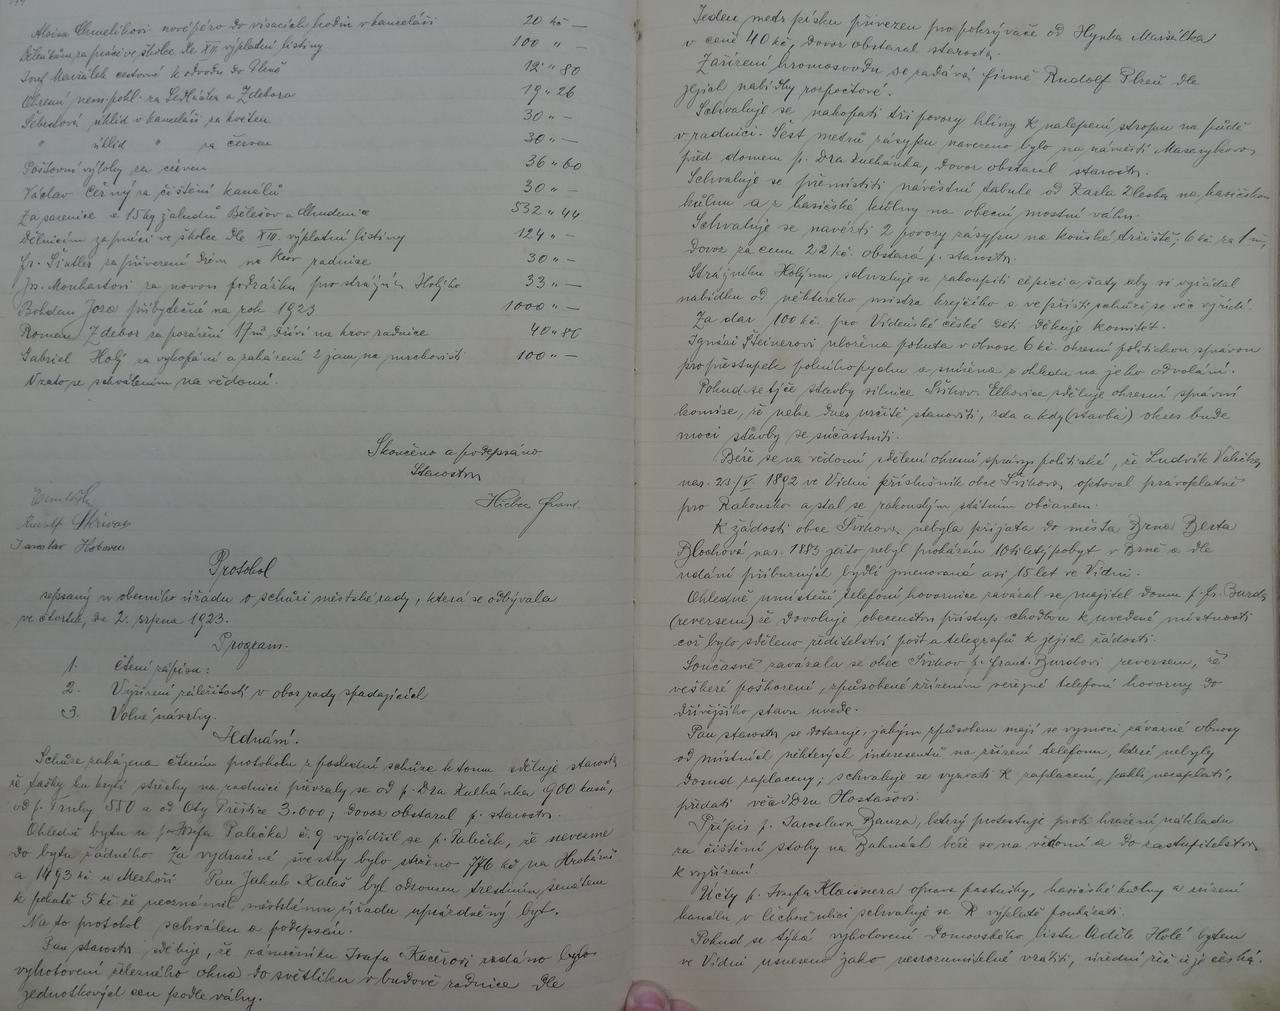 Aloisu Chmelíkovi nové péro do visacích hodin v kanceláři 20 Kč —
Dělníkům za práci ve školce dle XII. výplatní listiny 100 " —
Josef Maršálek cestovné k odvodu do Plzně 12 " 80
Okresní nem. pokl. za Sedláčka a Zdebora 19 " 26
úklid v kanceláři za květen 30 " —
" úklid " za červen 30 " —
Poštovní výlohy za červen 36 " 60
Václav Černý za čištění kanálů 30 " —
Za sazenice a 15 kg žaludů Bělešov a Chudenice 532 " 44
Dělnicím za práci ve školce dle XIII. výplatní listiny 124 " —
Fr. Šindler za přivezení dříví na krov radnice 30 " —
za novou podrážku pro strážníka Holého 33 " —
Bohdan Joza přibytečné na rok 1923 1000 " —
Roman Zdebor za poražení 17 m dříví na krov radnice 40 " 80
Gabriel Holý za vykopání a zaházení 2 jam na mrchovišti 100 " —
Vzato se schválením na vědomí.
Skončeno a podepsáno
Starosta
Hieber Frant.
Rudolf Skřivan
Jaroslav
Protokol
sepsaný v obecním úřadu o schůzi městské rady, která se odbývala
ve čtvrtek, dne 2. srpna 1923.
Program.
1. Čtení zápisu:
2. Vyřízení záležitostí v obor rady spadajících
3. Volné návrhy.
Jednání.
Schůze zahájena čtením protokolu z poslední schůze k tomu sděluje starosta
že tašky ku krytí střechy na radnici převzaly se od p. Dra Kulhánka 900 kusů,
od p. Trnky 550 a od Oty Přeštice 3.000; dovoz obstaral p. starosta.
Ohledně bytu u p. Josefa Palečka č. 9 vyjádřil se p. Paleček, že nevezme
do bytu žádného. Za vydražené švestky bylo strženo 776 Kč na Hrobárně
a 1493 Kč u Mezhoří. Pan Jakub Kalaš byl odsouzen trestním senátem
k pokutě 5 Kč že neoznámil městskému úřadu uprázdněný byt.
Na to protokol schválen a podepsán.
Pan starosta sděluje, že zámečníku Josefu Kučerovi zadáno bylo
vyhotovení železného okna do světlíku v budově radnice dle
jednotkových cen podle váhy.
Jeden metr písku přivezen pro pokrývače od Hynka Maršálka
v ceně 40 Kč, dovoz obstaral starosta.
Zařízení hromosvodu se zadává firmě Rudolf Plzeň dle
jejich nabídky rozpočtové.
Schvaluje se nakopati tři povozy hlíny k nalepení stropu na půdě
v radnici. Šest metrů zásypu navezeno bylo na náměstí Masarykovo
před domem p. Dra Kulhánka, dovoz obstaral starosta.
Schvaluje se přemístiti návěstní tabule od Karla Zleska na hasičskou
kůlnu a z hasičské kůlny na obecní mostní váhu.
Schvaluje se navézti 2 povozy zásypu na koňské tržiště, 6 Kč za 1 m,
dovoz za cenu 22 Kč. obstará p. starosta.
Strážníku Holýmu schvaluje se zakoupiti čepici a šaty aby si vyžádal
nabídku od některého mistra krejčího a ve příští schůzi se věc vyřídí.
Za dar 100 Kč. pro Vídeňské české děti děkuje komitét.
Ignáci Šteinerovi uložena pokuta v obnose 6 Kč. okresní politickou správou
pro přestupek polního pychu a snížena s ohledu na jeho odvolání.
Pokud se týče stavby silnice Švihov - Elhovice sděluje okresní správní
komise, že nelze dnes určitě stanoviti, zda a kdy (stavba) okres bude
moci stavby se súčastniti.
Béře se na vědomí sdělení okresní správy politické, že Ludvík Valečka,
nar. 23./V. 1892 ve Vídni příslušník obce Švihova, optoval právoplatně
pro Rakousko a stal se rakouským státním občanem.
K žádosti obce Švihova nebyla přijata do města Brna Berta
Blochová nar. 1883 ježto nebyl prokázán 10ti letý pobyt v Brně a dle
udání příbuzných bydlí jmenovaná asi 15 let ve Vídni.
Ohledně umístění telefoní hovornice zavázal se majitel domu p. Fr. Burda
(reversem) že dovoluje obecenstvu přístup chodbou k uvedené místnosti
což bylo sděleno ředitelství pošt a telegrafů k jejich žádosti.
Současně zavázala se obec Švihov p. Frant. Burdovi reversem, že
veškeré poškození, způsobené zřízením veřejné telefoní hovorny do
dřívějšího stavu uvede.
Pan starosta se dotazuje, jakým způsobem mají se vymoci závazné obnosy
od místních některých interesentů na zřízení telefonu, které nebyly
dosud zaplaceny; schvaluje se vyzvati k zaplacení, pakli nezaplatí,
přidati věc JDru Hostašovi.
Přípis p. Jaroslava Bauza, který protestuje proti hrazení nákladu
za čištění stoky na Bahnách béře se na vědomí a do zastupitelstva
k vyřízení.
Účty p. Josefa Klaisnera oprava pastušky, hasičské kůlny a zřízení
kanálu v ulici schvaluje se k výplatě poukázati.
Pokud se týká vyhotovení domovského listu Adéle Holé bytem
ve Vídni usneseno jako nesrozumitelné vrátiti, úřední řeč je česká.